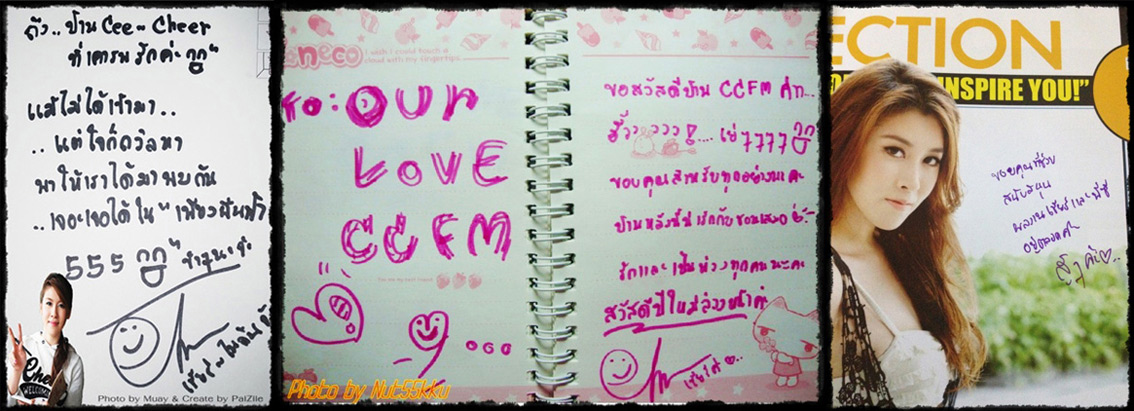 ถึง.. บ้าน Cee - Cheer
ที่เคารพรักค่ะ
แม้ไม่ได้เข้ามา..
.. แต่ใจก็ถวิลหา
พาให้เราได้มาพบกัน
.. เจอะเจอได้ใน "เพียงผืนฟ้า"
555
Cheer
WELCOME
Photo by Muay & Create by PalZiie
neco
I wish I could touch a
cloud with my fingertips
to: OUR
LOVE
CCFM
Photo by Nut55kku
ขอสวัสดีบ้าน CCFM ค่า...
ขอบคุณสำหรับทุกอย่างนะคะ
บ้านหลังนี้น่ารักกับ
รักและเป็นห่วงทุกคนนะคะ
สวัสดีปีใหม่ล่วงหน้าค่ะ
ECTION
INSPIRE YOU!"
ขอบคุณที่ช่วย
สนับสนุน
ผลงานเชียร์และพี่ซี
อยู่ตลอดค่ะ